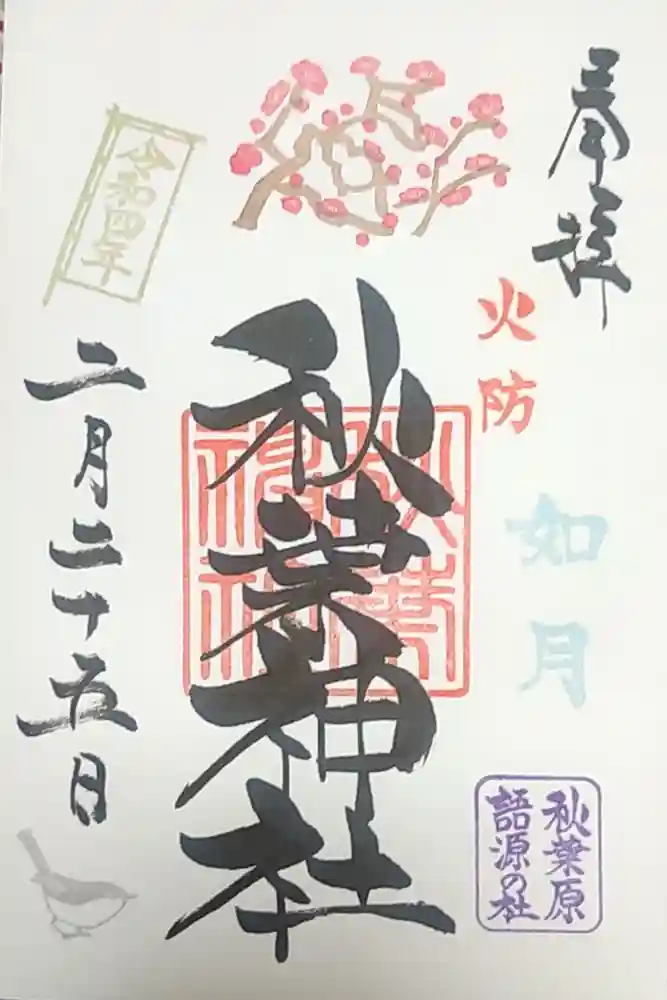 奉拝
火防
如月
秋葉原
語源の社
秋葉神社
秋葉
神社
令和四年
二月二十五日